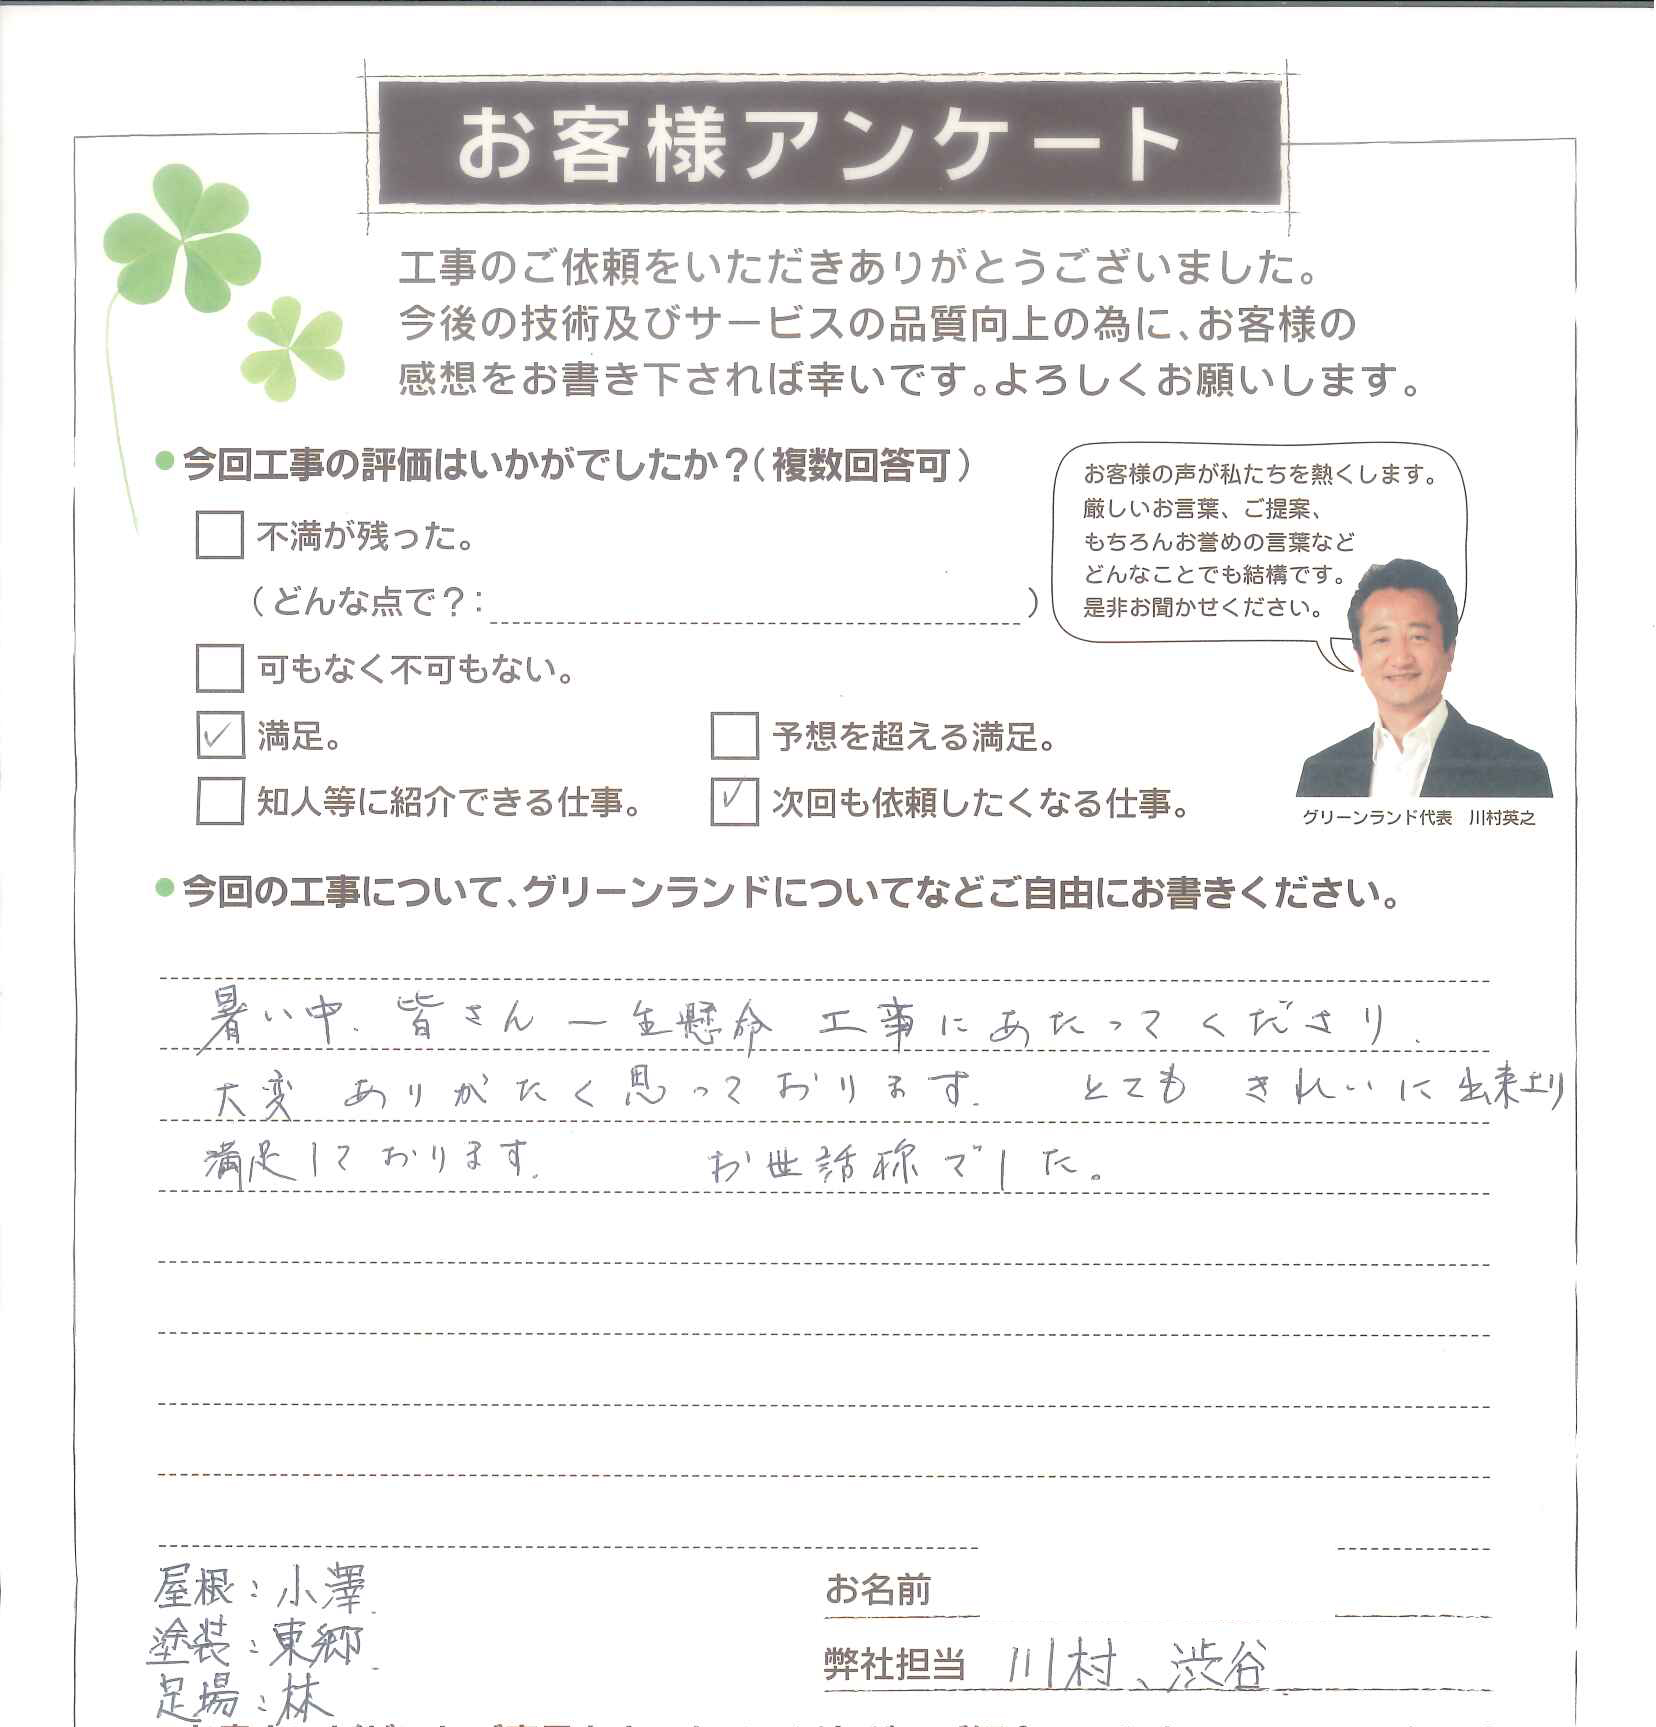 お客様アンケート
工事のご依頼をいただきありがとうございました。
今後の技術及びサービスの品質向上の為に、お客様の
感想をお書き下されば幸いです。よろしくお願いします。
●今回工事の評価はいかがでしたか?(複数回答可)
お客様の声が私たちを熱くします。
厳しいお言葉、ご提案、
もちろんお誉めの言葉など
どんなことでも結構です。
是非お聞かせください。
グリーンランド代表 川村英之
□ 不満が残った。
(どんな点で?: )
□ 可もなく不可もない。
☑ 満足。 □ 予想を超える満足。
□ 知人等に紹介できる仕事。 ☑ 次回も依頼したくなる仕事。
●今回の工事について、グリーンランドについてなどご自由にお書きください。
暑い中、皆さん一生懸命 工事にあたってくださり、
大変 ありがたく思っております。 とても きれいに出来上り
満足しております。 お世話様でした。
屋根:小澤
塗装:東郷
足場:林
お名前
弊社担当 川村、渋谷